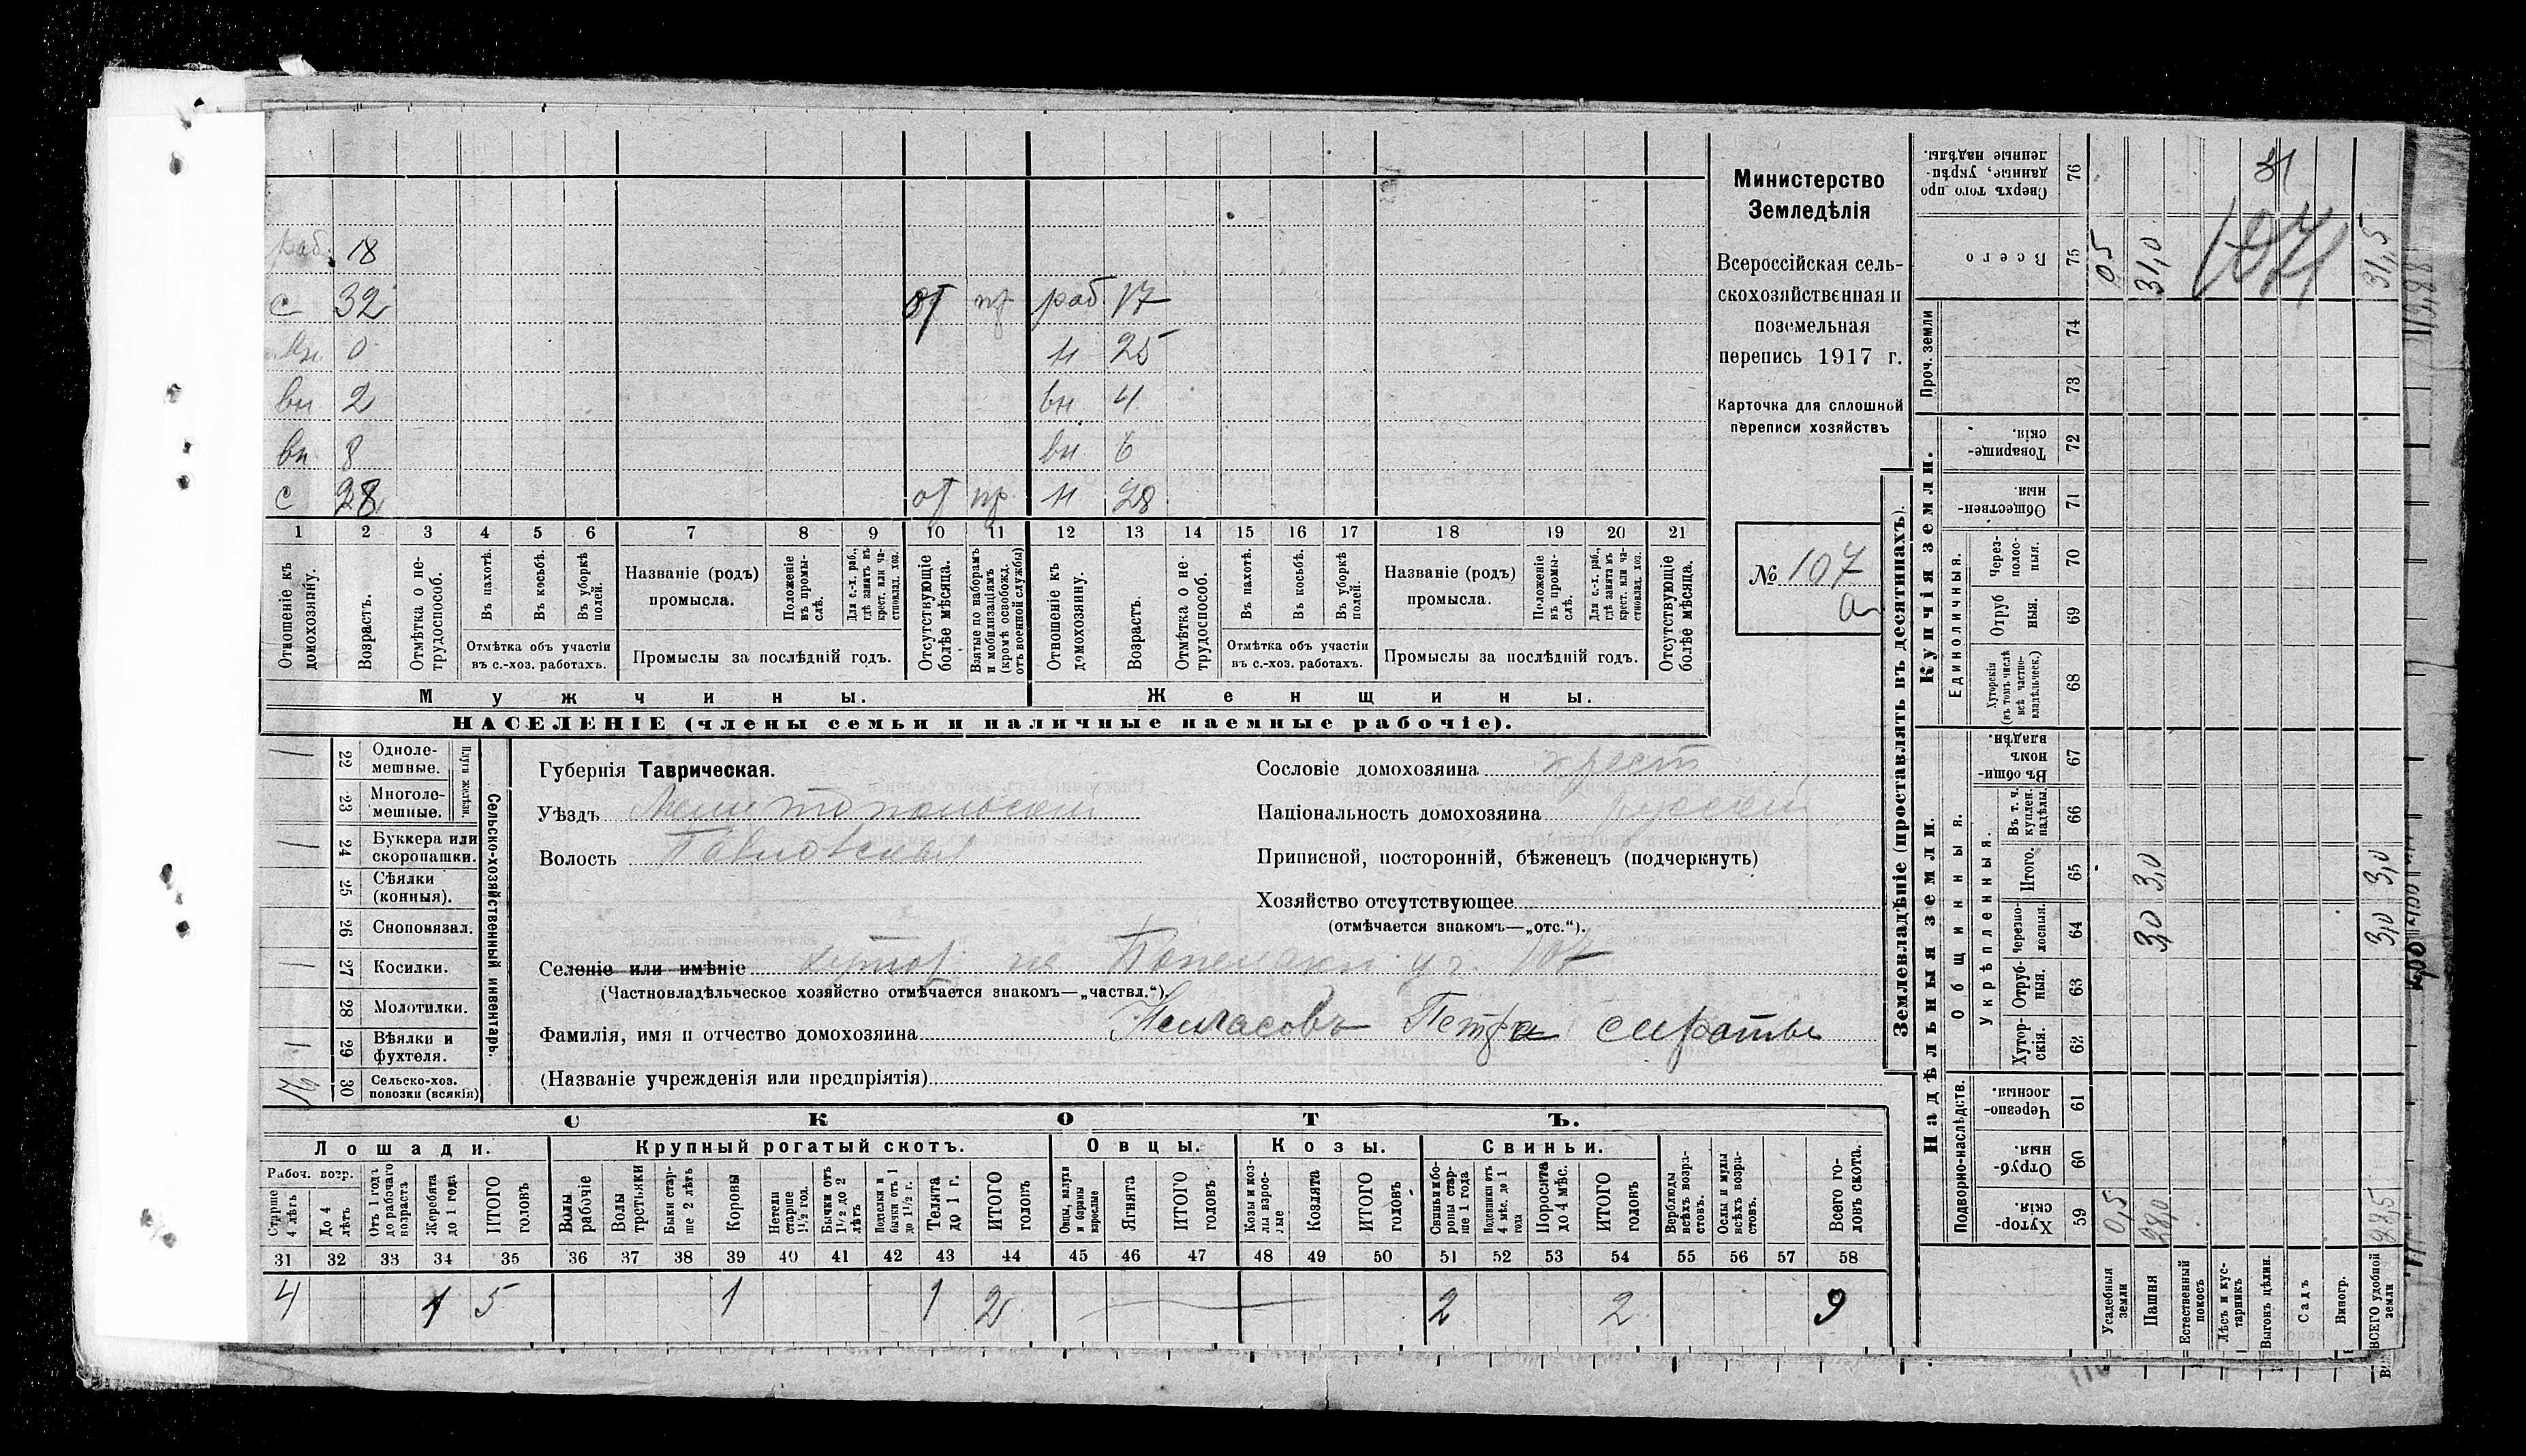 раб. 18
с 32 от пр раб 17
вн 0 н 25
вн 2 вн 4
вн 8 вн 6
с 28 от пр н 28
1 2 3 4 5 6 7 8 9 10 11 12 13 14 15 16 17 18 19 20 21
Отношеніе къ домохозяину.
Возрастъ.
Отмѣтка о нетрудоспособ.
Въ пахотѣ.
Въ косьбѣ.
Въ уборкѣ полей.
Отмѣтка объ участіи въ с.-хоз. работахъ.
Названіе (родъ) промысла.
Положеніе въ промыслѣ.
Для с.-х. раб., гдѣ занятъ въ крест. или частновлад. хоз.
Промыслы за послѣдній годъ.
Отсутствующіе болѣе мѣсяца.
Взятые по наборамъ и мобилизаціямъ (кромѣ освобожд. отъ военной службы)
Отношеніе къ домохозяину.
Возрастъ.
Отмѣтка о нетрудоспособ.
Въ пахотѣ.
Въ косьбѣ.
Въ уборкѣ полей.
Отмѣтка объ участіи въ с.-хоз. работахъ.
Названіе (родъ) промысла.
Положеніе въ промыслѣ.
Для с.-х. раб., гдѣ занятъ въ крест. или частновлад. хоз.
Промыслы за послѣдній годъ.
Отсутствующіе болѣе мѣсяца.
Мужчины. Женщины.
НАСЕЛЕНІЕ (члены семьи и наличные наемные рабочіе).
Министерство
Земледѣлія
Всероссійская сель-
скохозяйственная и
поземельная
перепись 1917 г.
Карточка для сплошной
переписи хозяйствъ
№ 107
а
Сельско-хозяйственный инвентарь.
Плуги желѣзн.
1 22 Одноле-мешные.
23 Многоле-мешные.
1 24 Буккера или скоропашки.
25 Сѣялки (конныя).
26 Сноповязал.
1 27 Косилки.
28 Молотилки.
1 29 Вѣялки и фухтеля.
30 Сельско-хоз. повозки (всякія)
Губернія Таврическая.
Уѣздъ Мелитопольскій
Волость Павловская
Сословіе домохозяина крест
Національность домохозяина русскій
Приписной, посторонній, бѣженецъ (подчеркнуть)
Хозяйство отсутствующее
(отмѣчается знакомъ—„отс.“).
Селеніе или имѣніе хутор уч. 107
(Частновладѣльческое хозяйство отмѣчается знакомъ—„частвл.“)
Фамилія, имя и отчество домохозяина Петра сироты
(Названіе учрежденія или предпріятія)
СКОТЪ.
Лошади. Крупный рогатый скотъ. Овцы. Козы. Свиньи.
Рабоч. возр.
Старше 4 лѣтъ
До 4 лѣтъ
Отъ 1 года до рабочаго возраста
Жеребята до 1 года
ИТОГО головъ
Волы рабочіе
Волы третьяки
Быки старше 2 лѣтъ
Коровы
Нетели старше 1½ год.
Бычки отъ 1½ до 2 лѣтъ
Подтелки и бычки отъ 1 до 1½ г.
Телята до 1 г.
ИТОГО головъ
Овцы, валухи и бараны взрослые
Ягнята
ИТОГО головъ
Козы и козлы взрослые
Козлята
ИТОГО головъ
Свиньи боровы старше 1 года
Подсвинки отъ 4 мѣс. до 1 года
Поросята до 4 мѣс.
ИТОГО головъ
Верблюды всѣхъ возрастовъ.
Ослы и мулы всѣхъ возрастовъ.
Всего головъ скота.
31 32 33 34 35 36 37 38 39 40 41 42 43 44 45 46 47 48 49 50 51 52 53 54 55 56 57 58
4 1 5 1 1 2 2 2 9
Землевладѣніе (проставлять въ десятинахъ).
Сверхъ того проданные, укрѣпленные надѣлы. 76
Всего 75 0,5 31,0 107 31,5
Проч. земли 74 73
Купчія земли.
Товарищескія. 72
Общественныя. 71
Единоличныя.
Черезполосныя. 70
Отрубныя. 69
Хуторскія (въ томъ числѣ всѣ частновладѣльческ.) 68
Надѣльныя земли.
Общинныя.
Въ общинномъ владѣн. 67
Укрѣпленныя.
Въ т. ч. куплен. надѣлы. 66
Итого. 65 3,0 3,0
Черезполосныя. 64 3,0 3,0
Отрубныя. 63
Хуторскія. 62
Подворно-наслѣдств.
Черезполосныя. 61
Отрубныя 60
Хуторскія 59 0,5 28,0 28,5
Усадебныя земли
Пашня
Естественный покосъ
Лѣсъ и кустарникъ
Выгонъ цѣлин.
Садъ
Виногр.
ВСЕГО удобной земли